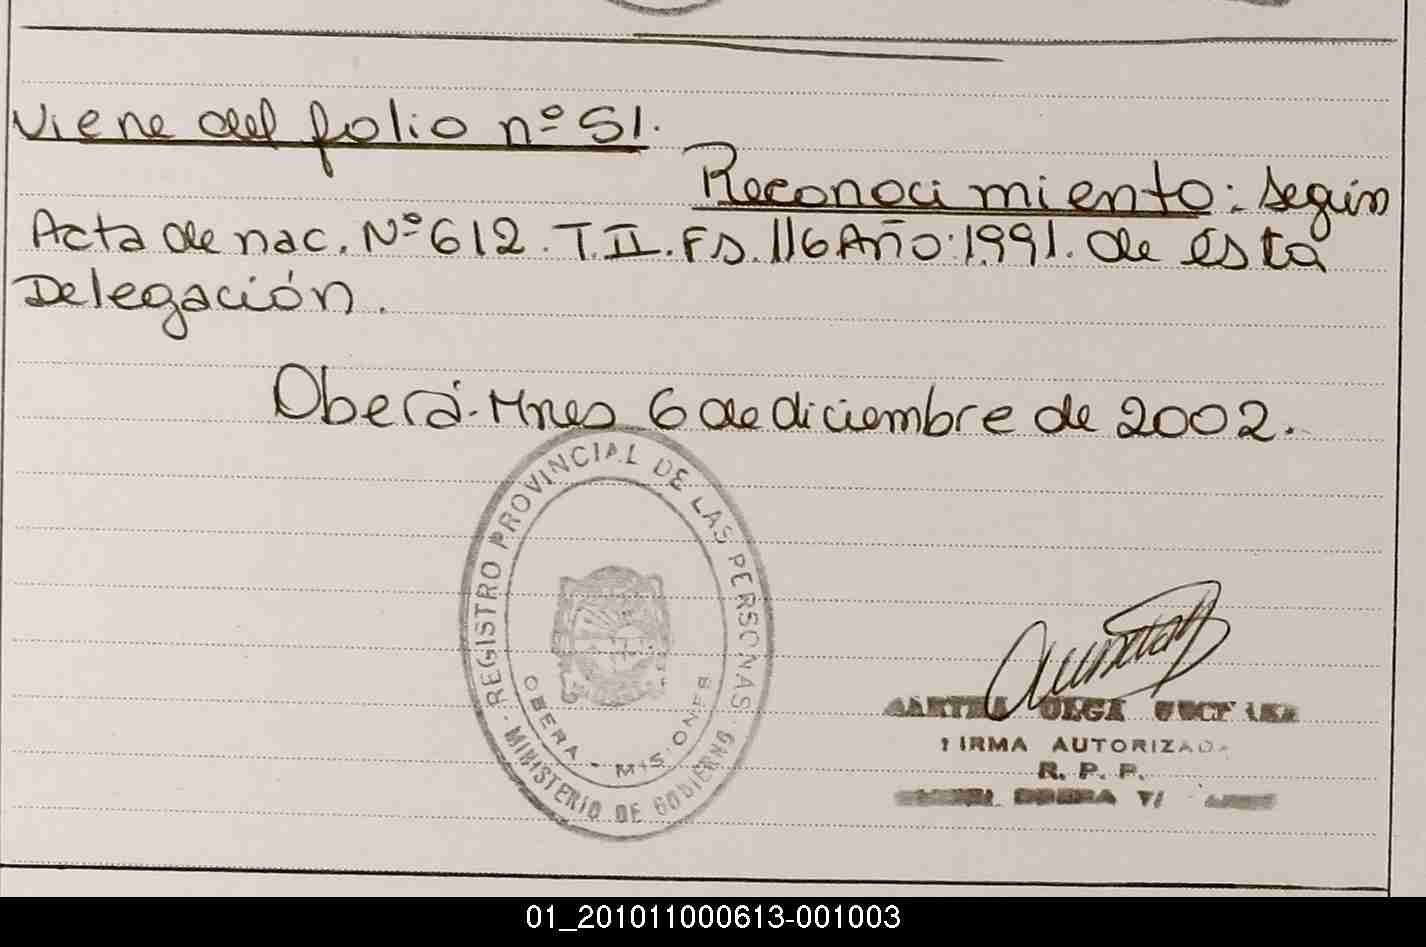 Viene del folio nº 51.
Reconocimiento: según
Acta de nac. Nº 612. T.II. Fs. 116 Año: 1991. de ésta
Delegación.
Oberá. Mnes 6 de diciembre de 2002.
REGISTRO PROVINCIAL DE LAS PERSONAS
MINISTERIO DE GOBIERNO
OBERA - MISIONES
OLGA
FIRMA AUTORIZADA
R. P. P.
01_201011000613-001003